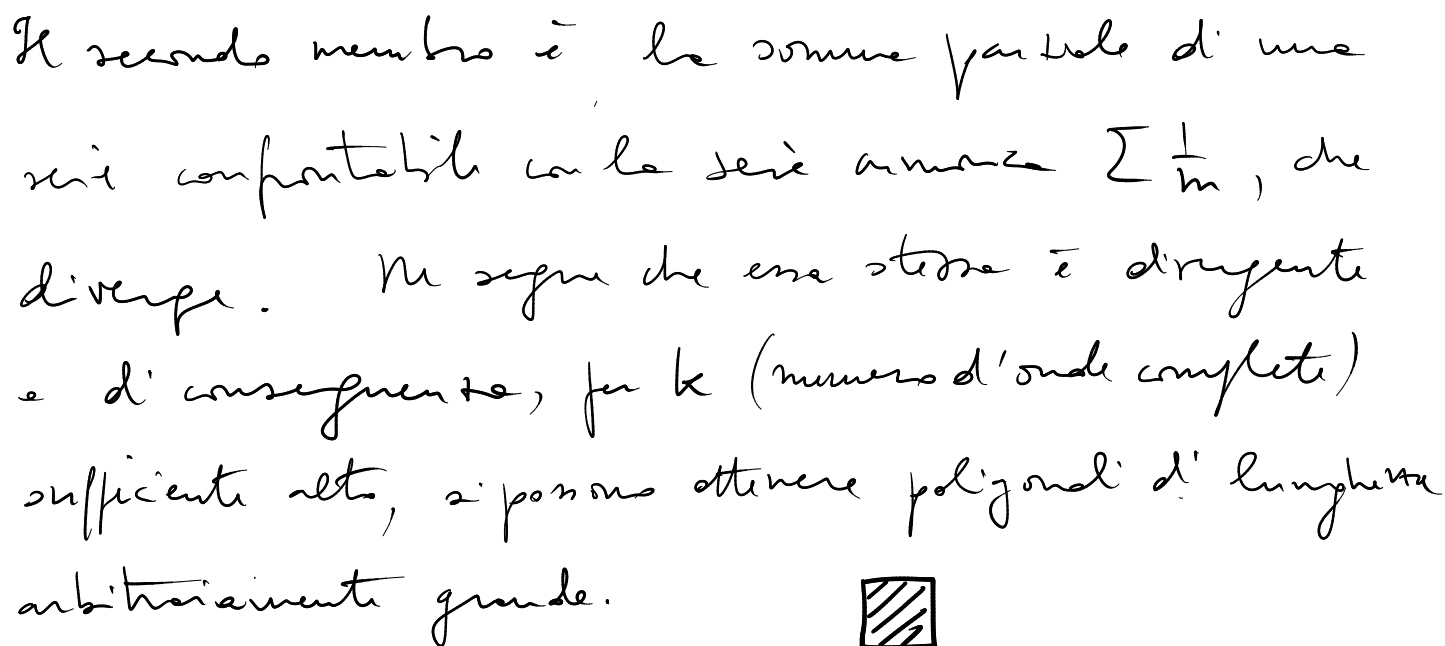 Il secondo membro è la somma parziale di una
serie confrontabile con la serie armonica ∑ 1/m, che
diverge. Ne segue che essa stessa è divergente
e di conseguenza, per k (numero d'onde complete)
sufficiente alto, si possono ottenere poligonali di lunghezza
arbitrariamente grande.